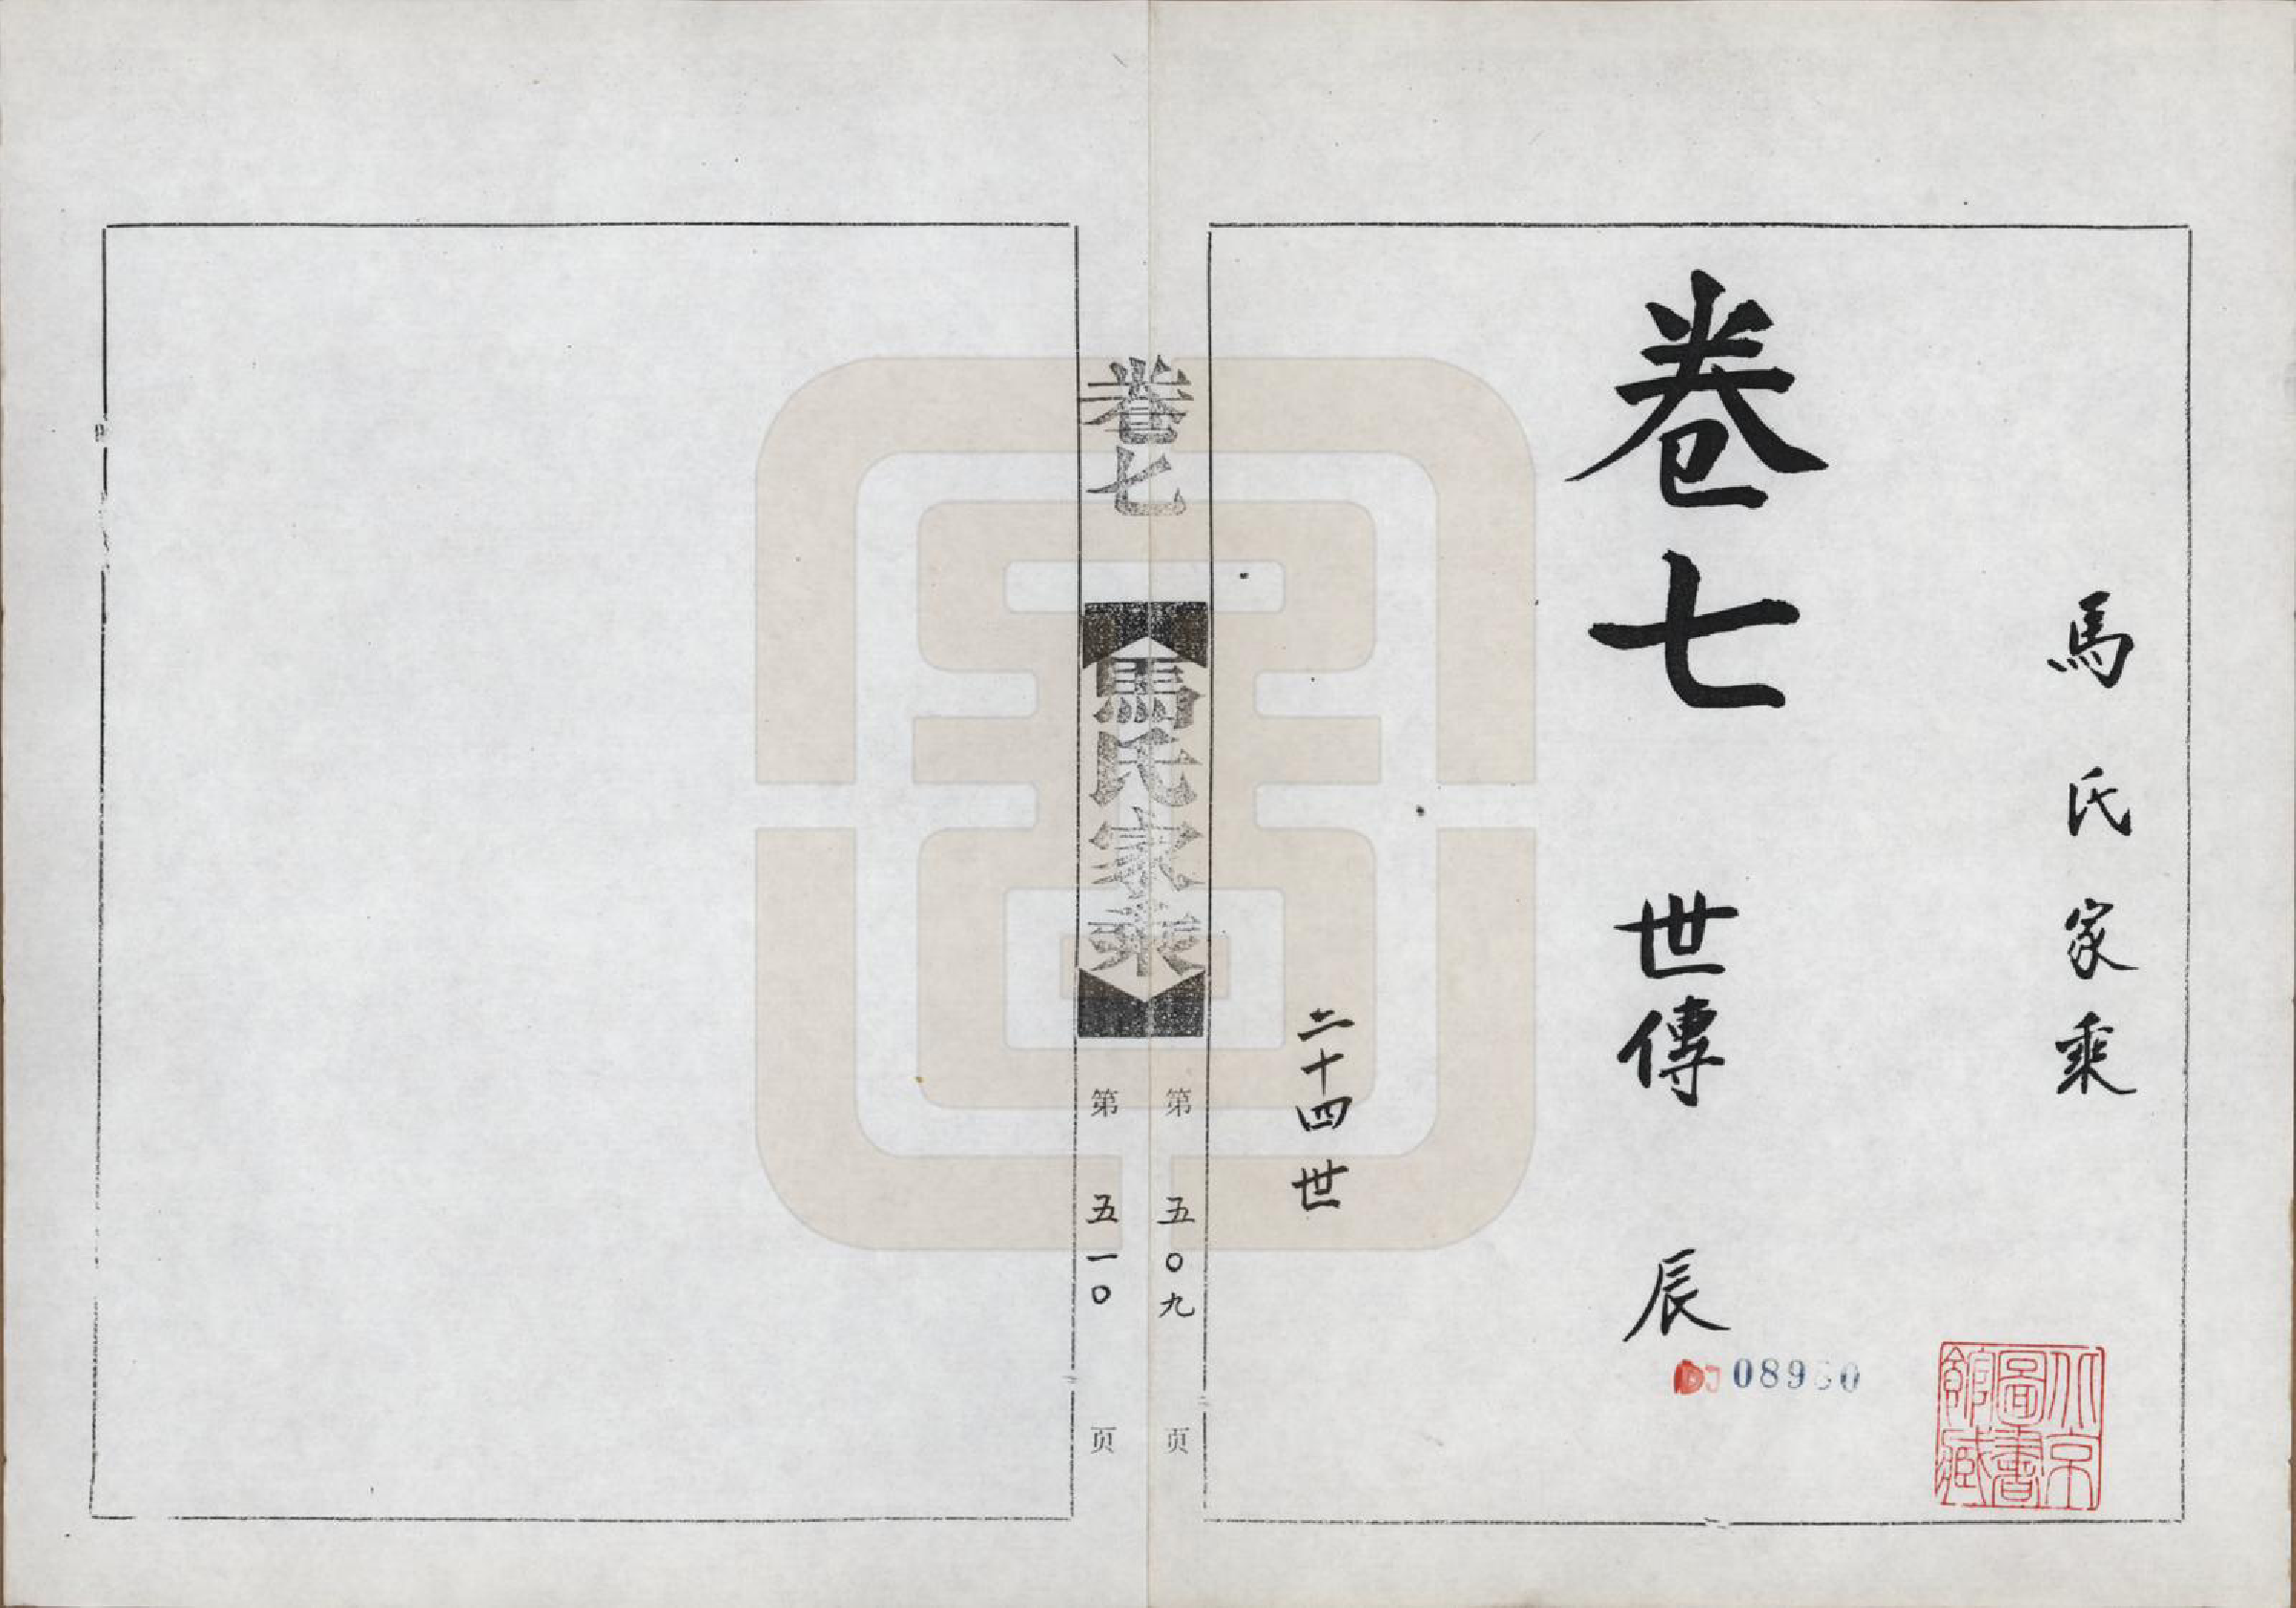 馬氏家乘
卷七 世傳 辰
二十四世
卷七
馬氏家乘
第五〇九页
第五一〇页
北京
圖書
館藏